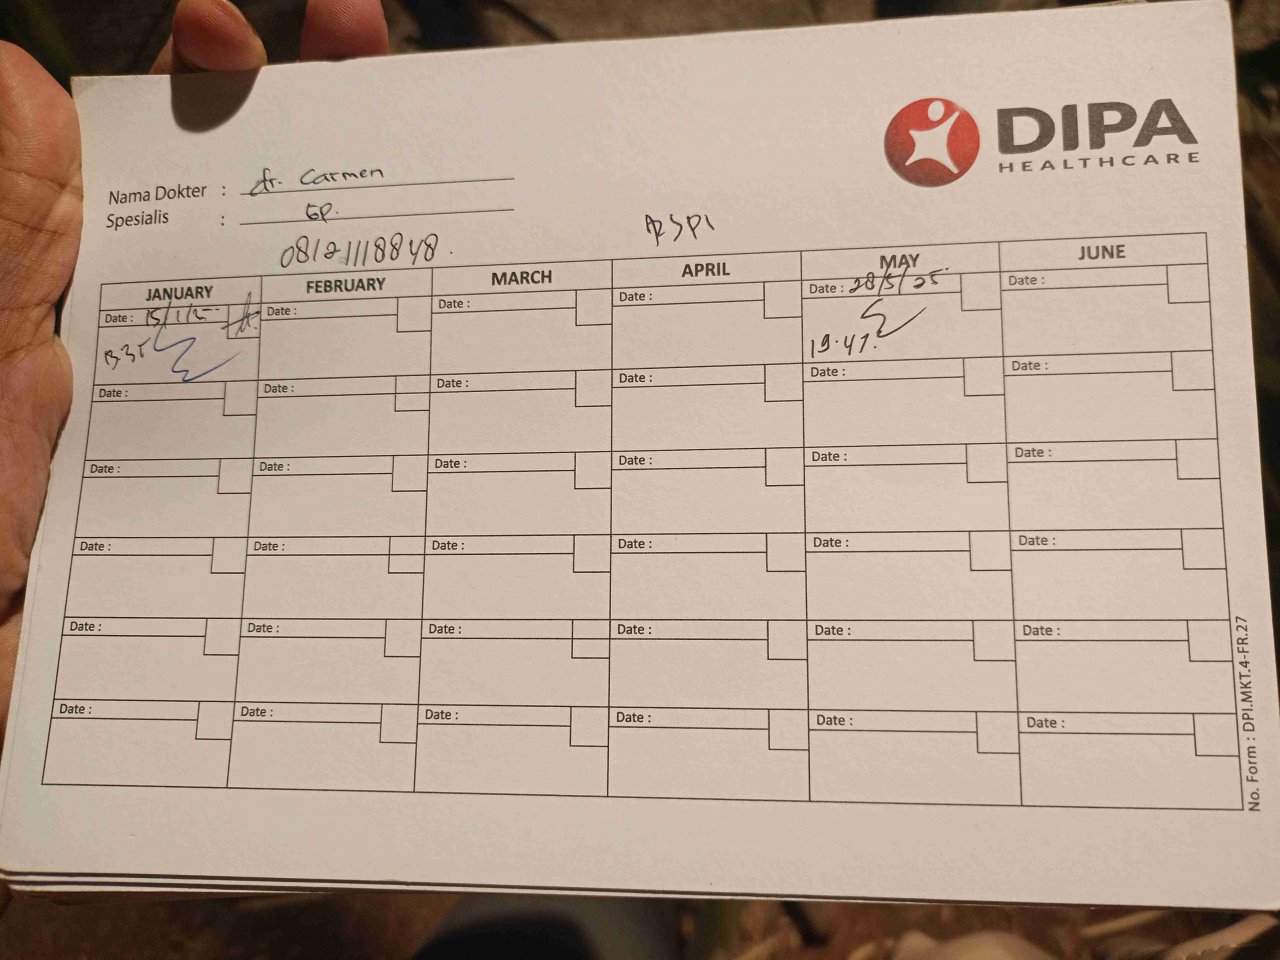 DIPA
HEALTHCARE
Nama Dokter : dr. Carmen
Spesialis : Gp.
08121118848.
RSPI
JANUARY FEBRUARY MARCH APRIL MAY JUNE
Date : 15/1/25 Date : Date : Date : Date : 28/5/25. Date :
19.47.
Date : Date : Date : Date : Date : Date :
Date : Date : Date : Date : Date : Date :
Date : Date : Date : Date : Date : Date :
Date : Date : Date : Date : Date : Date :
Date : Date : Date : Date : Date : Date :
No. Form : DPI.MKT.4-FR.27